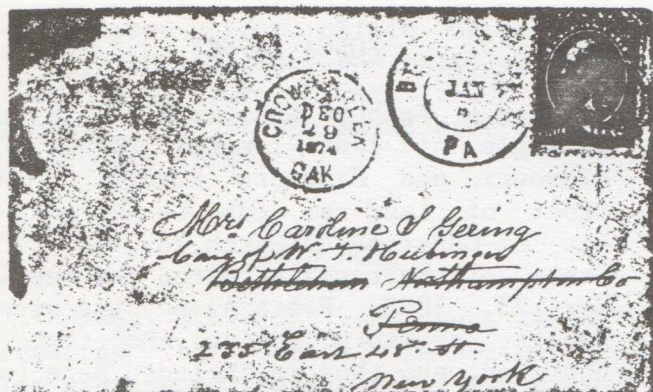 CROW
DEC
29
1874
DAK
B
JAN
PA
Mrs Caroline S Gering
Care of W. F. Huebinger
Bethlehem Northampton Co
Penna
235 East 48" St.
New York